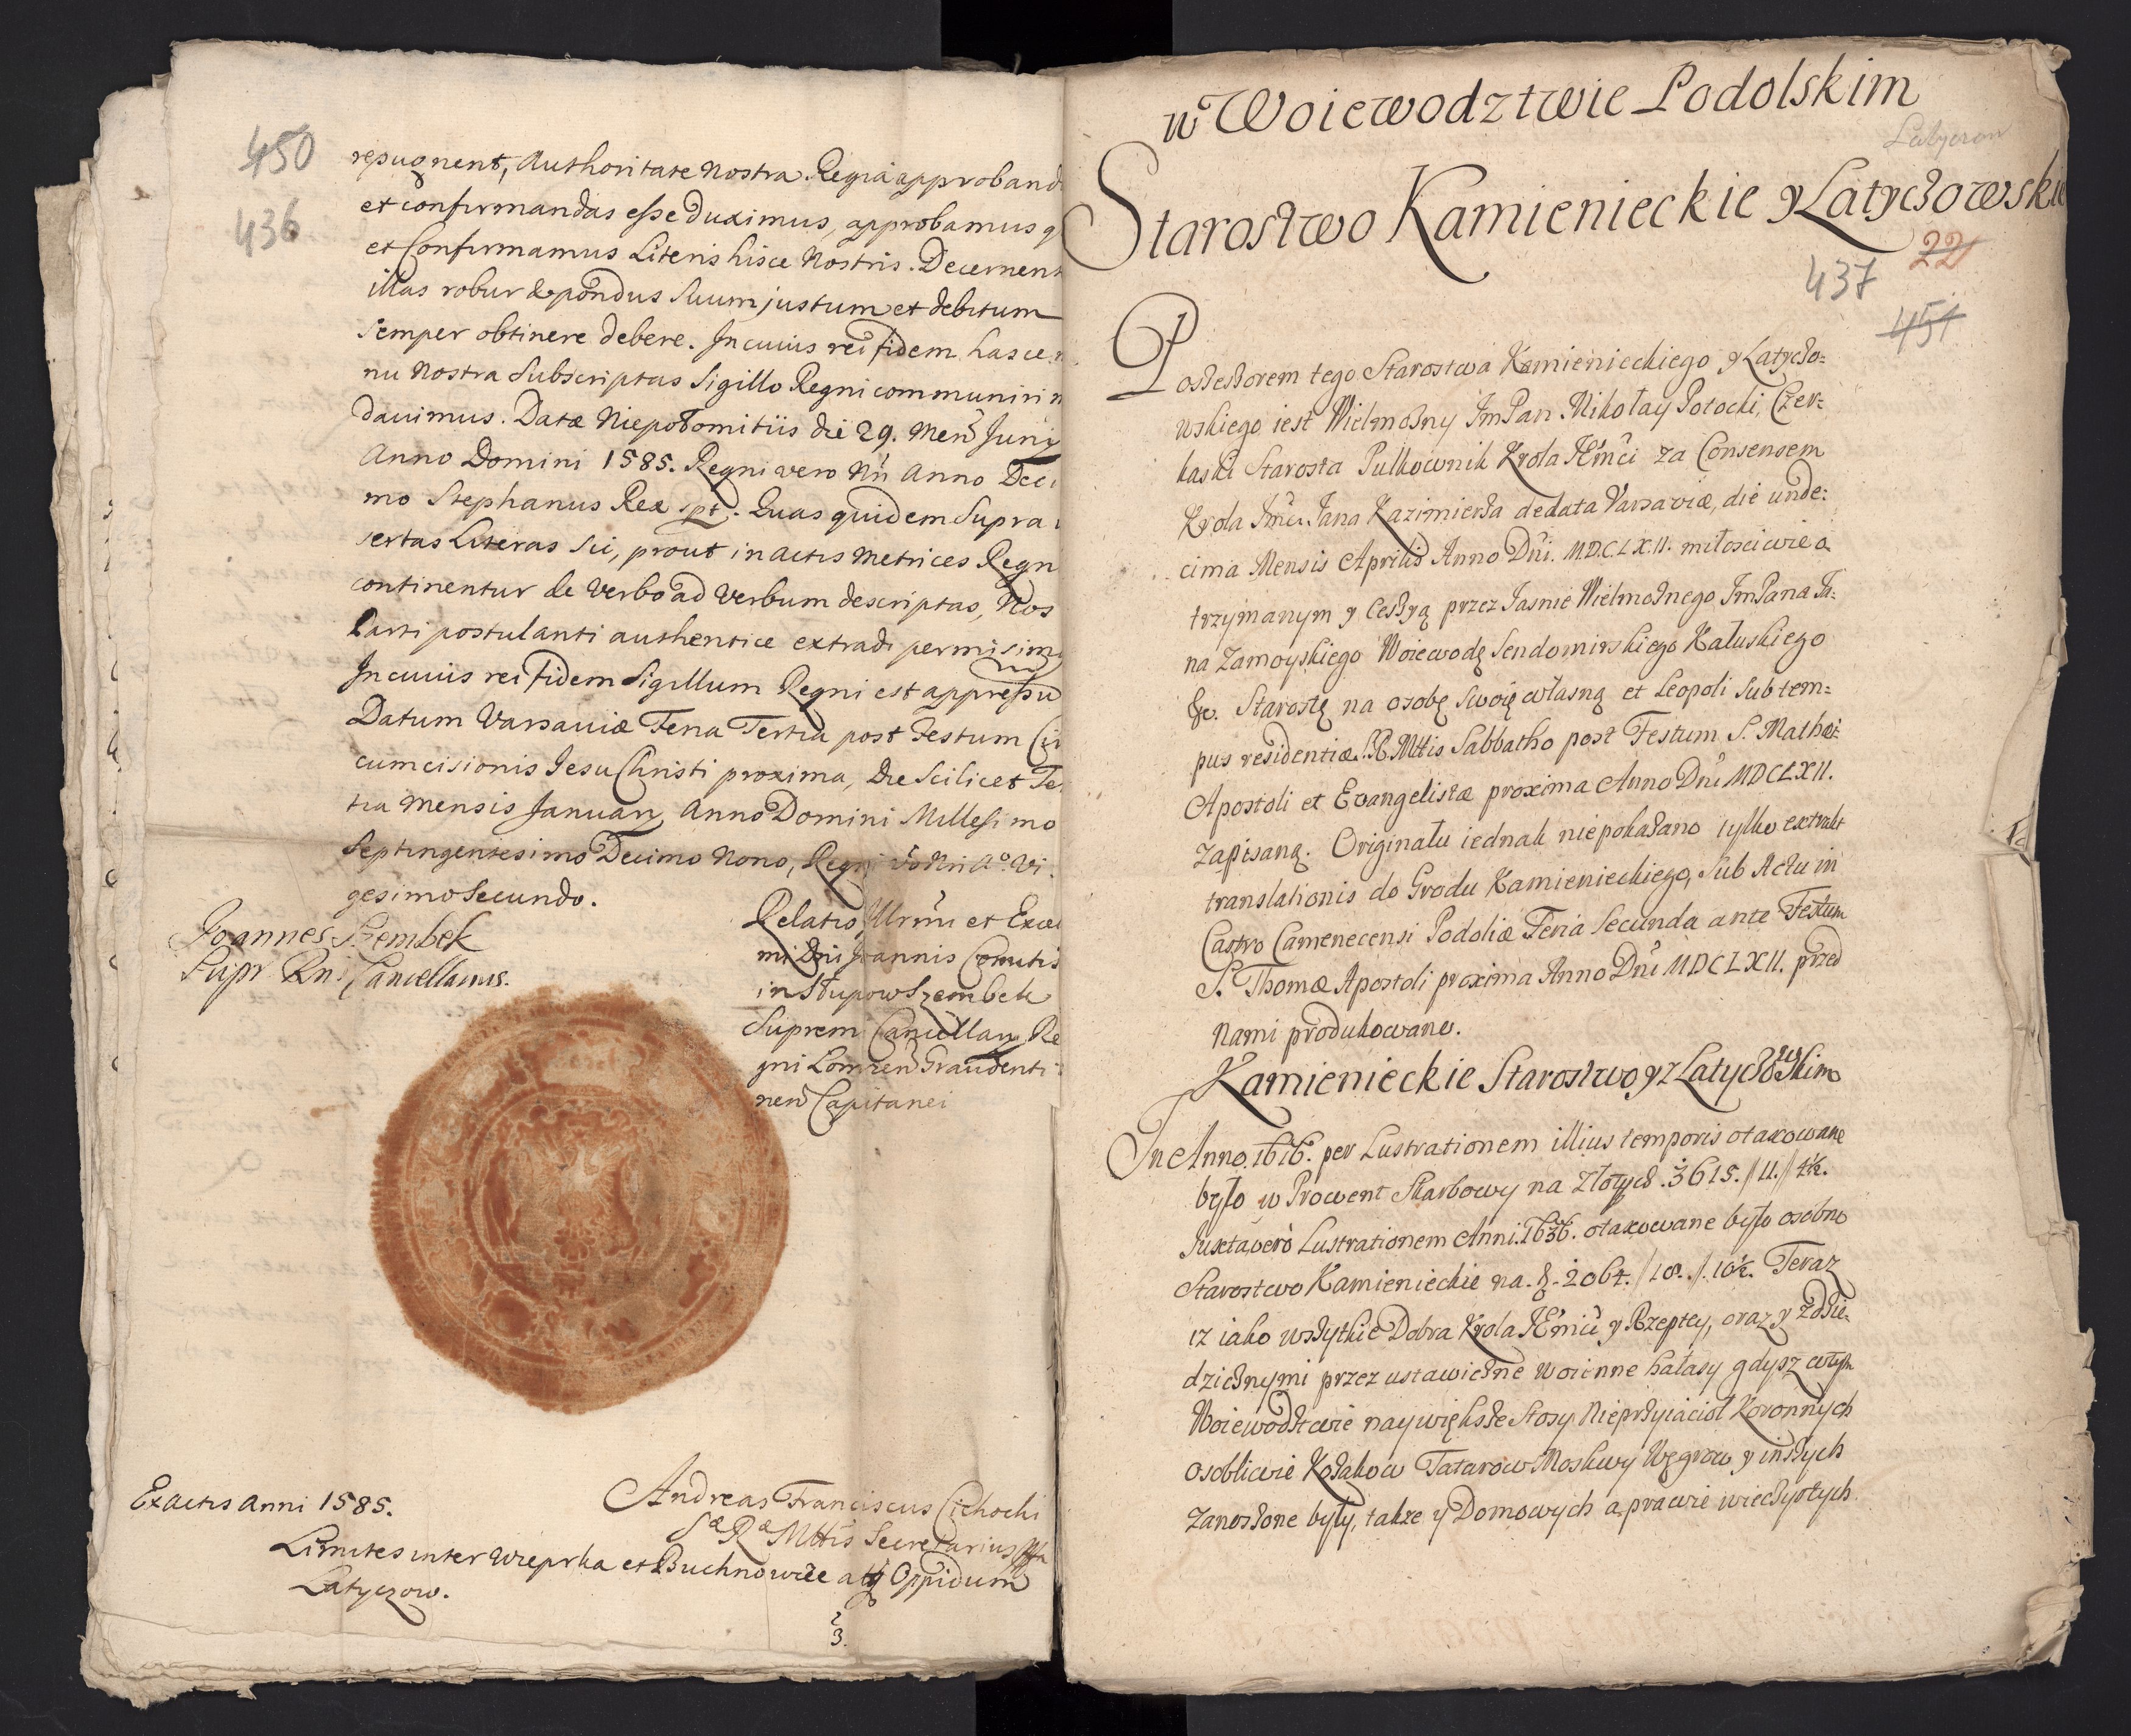 450
436
repugnent, Authoritate Nostra Regia approband
et confirmandas esse Duximus, approbamus q
et Confirmamus Literis hisce Nostris. Decernent
illas robur & pondus Suum justum et debitum
semper obtinere debere. In cuius rei fidem hasce
nu Nostra Subscriptas Sigillo Regni communiri
davimus. Datæ Niepołomitiis die 29. Men Junij
Anno Domini 1585. Regni vero Nri Anno Deci
mo Stephanus Rex spt. Quas quidem Supra
sertas Literas sic, prout in actis Metrices Regn
continentur de verbo ad verbum descriptas, Nos
Parti postulanti authentice extradi permisim
In cuius rei fidem Sigillum Regni est appressu
Datum Varsaviæ Feria Tertia post Festum Cir
cumcisionis Jesu Christi proxima, Die Scilicet Te
tia Mensis January Anno Domini Millesimo
Septingentesimo Decimo Nono, Regni vo Nri Aº. Vi
gesimo Secundo.
Joannes Szembek
Supr Rni Cancellarius.
Relatio Illrmi et Excel
mi Dni Joannis Comitis
in Słupow Szembek
Suprem Cancellary Re
gni Lomzen Graudenti
nen Capitanei
Ex actis Anni 1585.
Andreas Franciscus Cichocki
Sæ Ræ Mttis Secretarius
Limites inter Wieprka et Buchnowce atq Oppidum
Latyczow.
2
3.
w Woiewodztwie Podolskim
Latyczow
Starostwo Kamienieckie y Latyczowskie
22
437
451
Possessorem tego Starostwa Kamienieckiego y Latyczo=
wskiego iest Wielmozny ImPan Mikołay Potocki, Czer=
kaski Starosta Pulkownik Krola JKmci za Consensem
Krola Jmci Jana Kazimierza de data Varsaviæ, die unde:
cima Mensis Aprilis Anno Dni. M.D.C.L.X.II. miłosciwie o
trzymanym y Cessyą przez Jasnie Wielmoznego ImPana Ja:
na Zamoyskiego Woiewodę Sendomirskiego Kałuskiego
&c. Starostę na osobę swoię własną et Leopoli sub tem=
pus residentiæ S.R.Mttis Sabbatho post Festum S. Mathæi
Apostoli et Evangelistæ proxima Anno Dni MDCLXII.
zapisaną. Originału iednak nie pokazano tylko extrakt
translationis do Grodu Kamienieckiego, Sub Actu in
Castro Camenecensi Podoliæ Feria Secunda ante Festum
S. Thomæ Apostoli proxima Anno Dni MDCLXII. przed
Nami produkowano.
Kamienieckie Starostwo y z Latyczowskim
In Anno. 1616. per Lustrationem illius temporis otaxowane
było w Prowent Skarbowy na Złotych. 3615. // 11. // 4½.
Juxta vero Lustrationem Anni. 1636. otaxowane było osobno
Starostwo Kamienieckie na. f. 2064. // 18. // 10½. Teraz
iz iako wszytkie Dobra Krola JKmci y Rzeptey, oraz y z dzie=
dzicznymi przez ustawiczne woienne hałasy gdysz w tym
Woiewodztwie naywiększe Stosy Nieprzyiacioł Koronnych
osobliwie Kozakow Tatarow Moskwy Węgrow y inszych
zanoszone były, takze y Domowych a prawie wieczystych